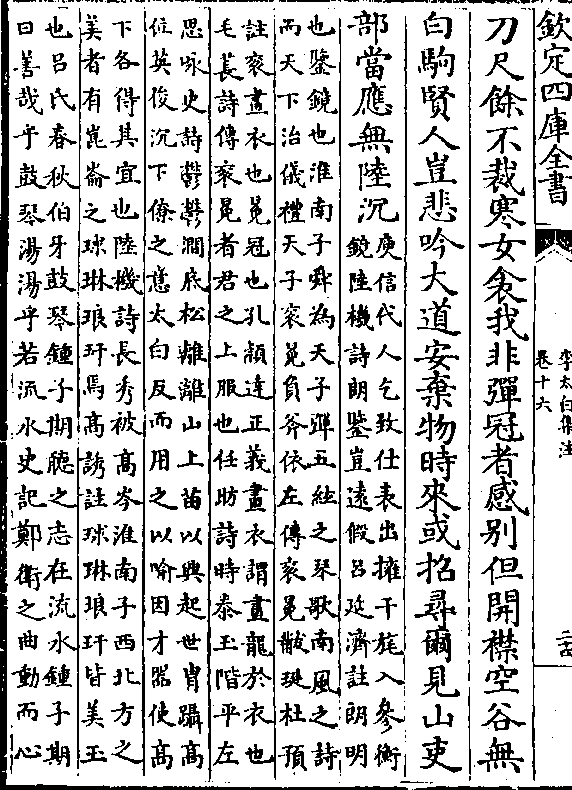 欽定四庫全書
李太白集注
卷十六
刀尺餘不裁寒女衾我非彈冠者感别但開襟空谷無
白駒賢人豈悲吟大道安棄物時來或招尋爾見山吏
部當應無陸沉
庾信代人乞致仕表出擁干旄入參衡
鏡陸機詩朗鑒豈遠假呂延濟註朗明
也鑒鏡也淮南子舜為天子彈五絃之琴歌南風之詩
而天下治儀禮天子衮冕負斧依左傳衮冕黻珽杜預
註衮畫衣也冕冠也孔穎達正義畫衣謂畫龍於衣也
毛萇詩傳衮冕者君之上服也任昉詩時泰玉階平左
思咏史詩鬱鬱澗底松離離山上苗以興起世胄躡高
位英俊沉下僚之意太白反而用之以喻因才器使高
下各得其宜也陸機詩長秀被高岑淮南子西北方之
美者有崑崙之球琳琅玕焉高誘註球琳琅玕皆美玉
也呂氏春秋伯牙鼓琴鍾子期聽之志在流水鍾子期
曰善哉乎鼓琴湯湯乎若流水史記鄭衛之曲動而心